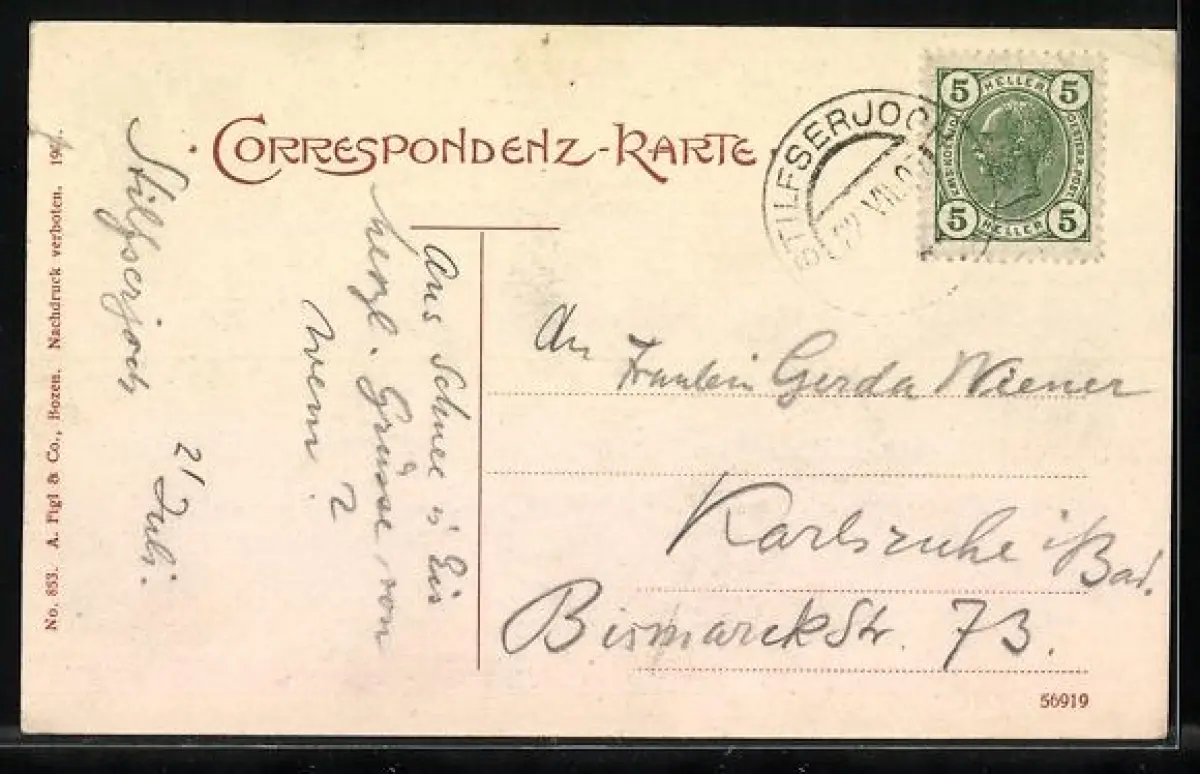 CORRESPONDENZ-KARTE
STILFSERJOC
VII.07
5 HELLER 5
5 HELLER 5
Stilfserjoch
21 Juli.
Aus Schnee u Eis
herzl. Grüsse von
Wem
?
An
Fräulein Gerda Wiener
Karlsruhe i/Bad.
BismarckStr. 73.
No. 853. A. Figl & Co., Bozen. Nachdruck verboten.
56919